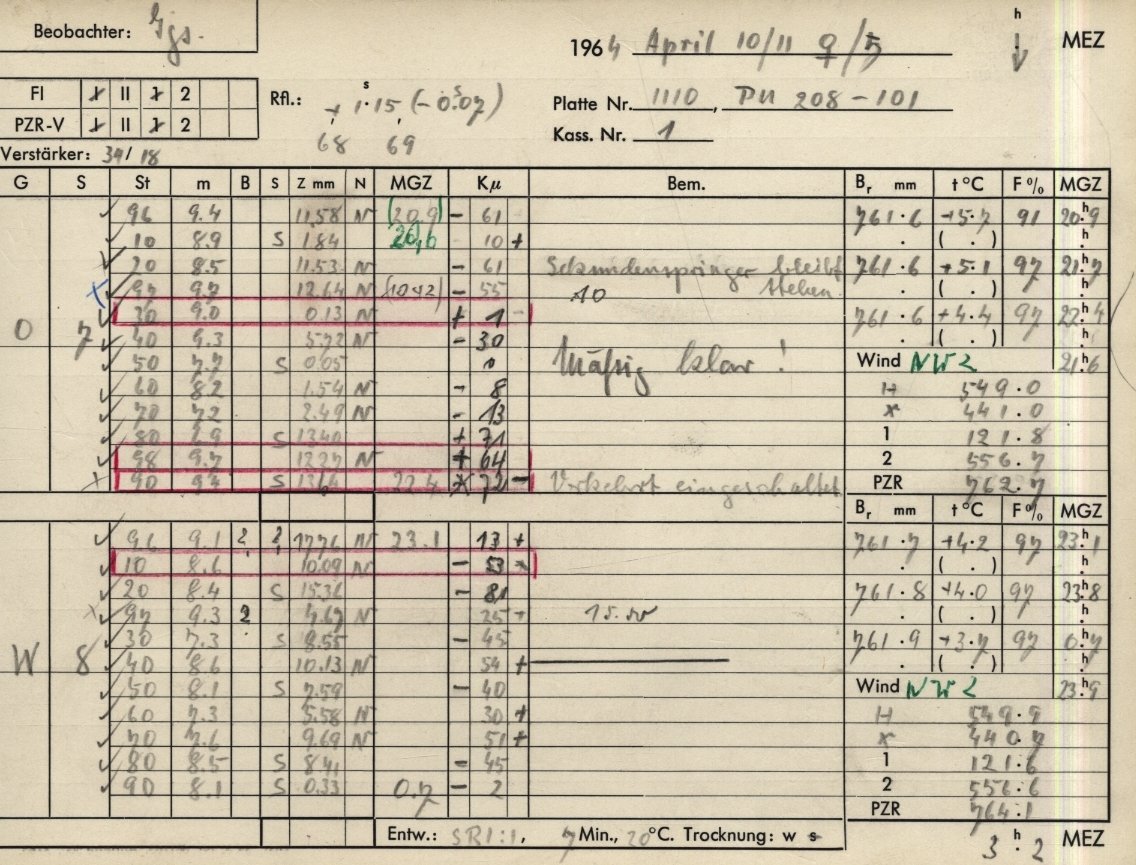 Beobachter: Ggs.
1964 April 10/11 ♀/♄ h MEZ
FI I II 1 2
PZR-V I II 1 2
Rfl.: + 1.ˢ15 (- 0.ˢ07)
68 69
Platte Nr. 1110, PN 208-101
Kass. Nr. 1
Verstärker: 34/18
G S St m B S Z mm N MGZ Kμ Bem. Bᵣ mm t °C F % MGZ
96 9.4 11.58 N (20.9) - 61 761.6 +5.7 91 20.ʰ9
10 8.9 S 1.84 20,6 10 + . ( . ) .ʰ
20 8.5 11.53 N - 61 Sekundenspringer bleibt 761.6 +5.1 97 21.ʰ7
97 9.7 12.64 N - 55 10 stehen. . ( . ) .ʰ
30 9.0 0.13 N + 1 - 761.6 +4.4 97 22.ʰ4
O 7 40 9.3 5.72 N - 30 . ( . ) .ʰ
50 7.7 S 0.05 0 Mäßig klar! Wind NW 2 21.ʰ6
60 8.2 1.54 N - 8 H 549.0
70 7.2 2.49 N - 13 x 441.0
80 6.9 S 13.40 + 71 1 121.8
98 9.7 12.27 N + 64 2 556.7
90 9.4 S 13.64 22.4 72 - Verkehrt eingeschaltet PZR 762.7
Bᵣ mm t °C F % MGZ
96 9.1 2 ? 17.76 N 23.1 13 + 761.7 +4.2 97 23.ʰ1
10 8.6 10.09 N - 53 . ( . ) .ʰ
20 8.4 S 15.36 - 81 761.8 +4.0 97 23.ʰ8
97 9.3 2 4.67 N 25 + 15.50 . ( . ) .ʰ
30 7.3 S 8.55 - 45 761.9 +3.7 97 0.ʰ7
W 8 40 8.6 10.13 N 54 + . ( . ) .ʰ
50 8.1 S 7.59 - 40 Wind NW 2 23.ʰ9
60 7.3 5.58 N 30 + H 549.9
70 7.6 9.69 N 51 + x 440.7
80 8.5 S 8.41 - 45 1 121.6
90 8.1 S 0.33 0.7 - 2 2 556.6
PZR 764.1
Entw.: SR 1:1, 7 Min., 20 °C. Trocknung: w s 3.ʰ2 MEZ